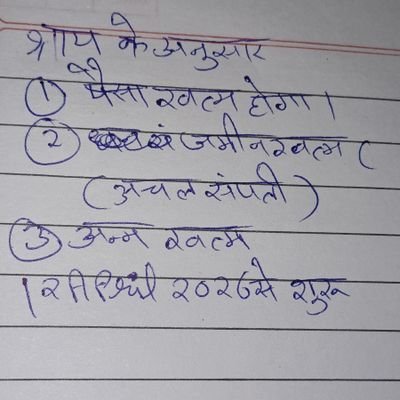 श्राप के अनुसार
① पैसा खत्म होगा।
② जमीन खत्म (
(अचल संपती)
③ अन्न खत्म
२०२८से शुरू